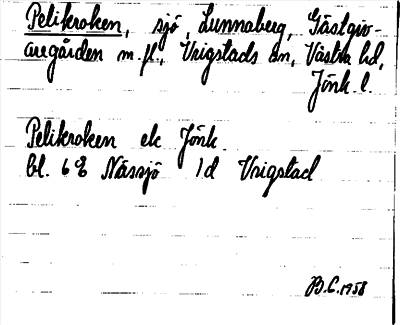 Pelikroken, sjö, Lunnaberg, Gästgiv-
aregården m.fl., Vrigstads sn, Västra hd,
Jönk. l.
Pelikroken ek Jönk.
bl. 6E Nässjö 1d Vrigstad
B.C. 1958